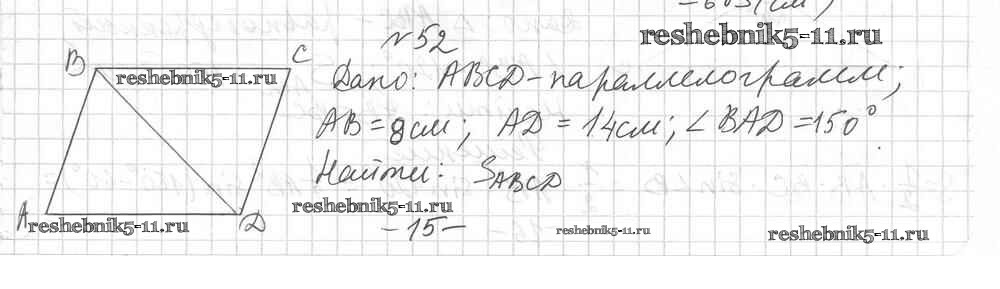 N52
reshebnik5-11.ru
B C
reshebnik5-11.ru
Дано: ABCD - параллелограмм;
AB = 8см; AD = 14см; ∠BAD = 150°
Найти: S_ABCD
reshebnik5-11.ru
A D
reshebnik5-11.ru
-15-
reshebnik5-11.ru
reshebnik5-11.ru